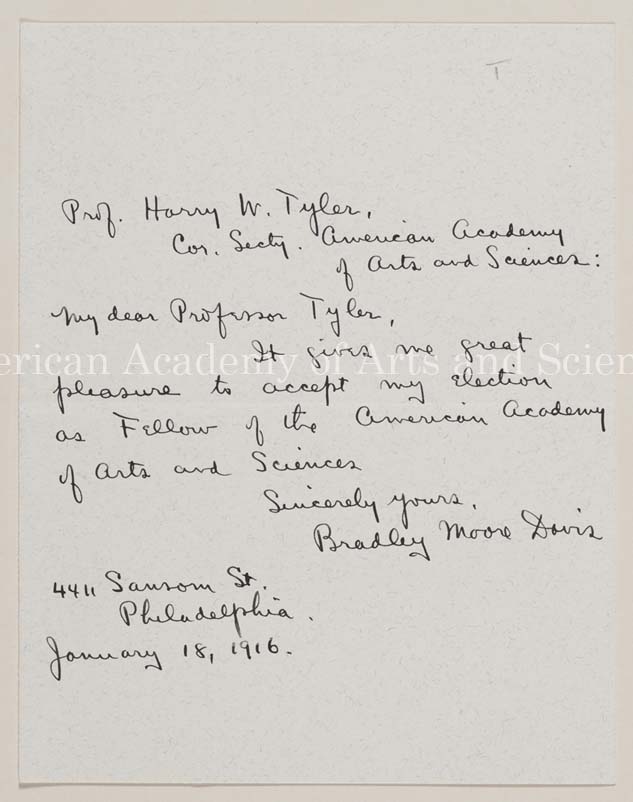 T
Prof. Harry W. Tyler,
Cor. Secty. American Academy
of Arts and Sciences:
My dear Professor Tyler,
It gives me great
erican Academy of Arts and Scien
pleasure to accept my election
as Fellow of the American Academy
of Arts and Sciences
Sincerely yours,
Bradley Moore Davis
4411 Sansom St.
Philadelphia.
January 18, 1916.